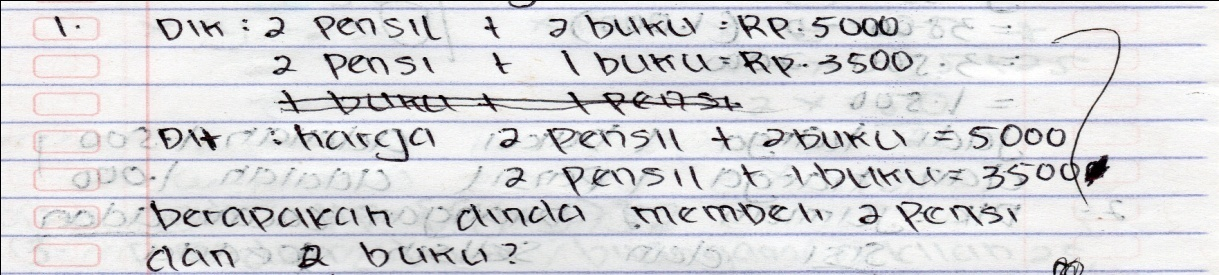 1. Dik : 2 pensil + 2 buku = Rp. 5000
2 pensi + 1 buku = Rp. 3500
1 buku + 1 pensi
Dit : harga 2 pensil + 2 buku = 5000
2 pensil + 1 buku = 3500
berapakah dinda membeli 2 pensi
dan 2 buku?